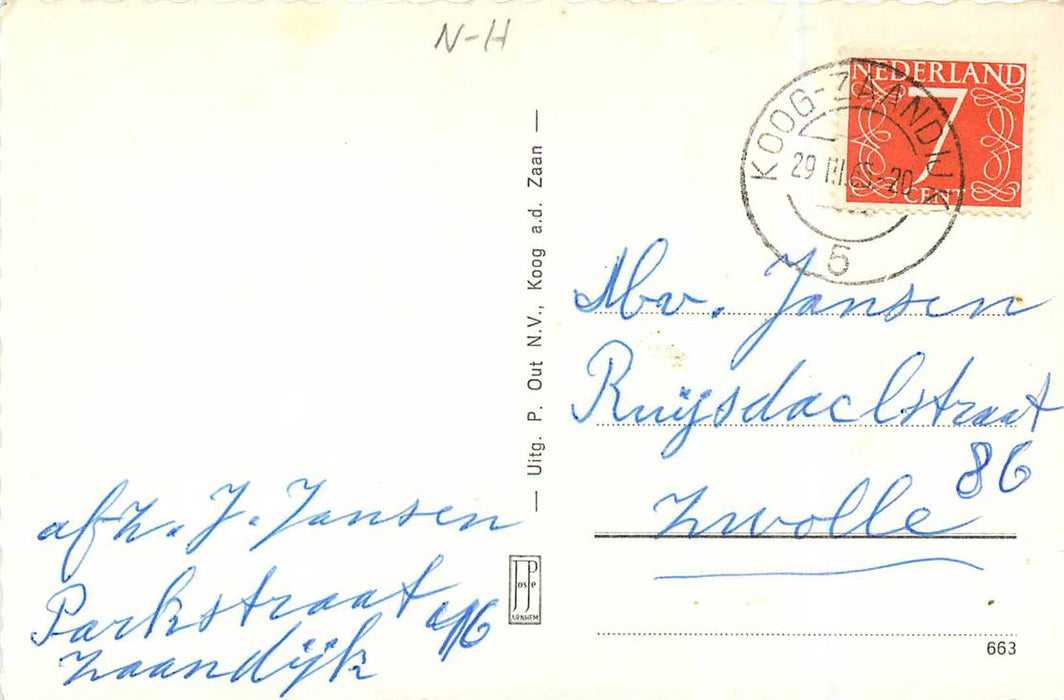 N-H
NEDERLAND
7
CENT
KOOG-ZAANDIJK
29 III.65-20
5
Uitg. P. Out N.V., Koog a.d. Zaan
Mv. Jansen
Ruijsdaelstraat
86
Zwolle
afz. J. Jansen
Parkstraat
Zaandijk
JosPe
ARNHEM
663